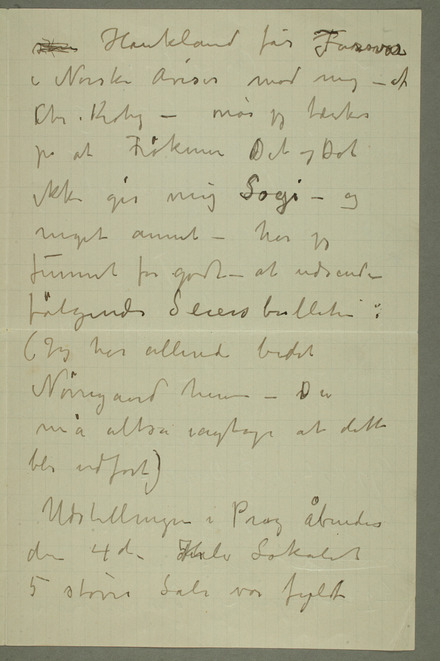 Haukland får Forsvar
i Norske Aviser mod mig – af
Chr. Krohg – når jeg tænker
på at Frøkener Det og Dat
ikke gir mig Sogi – og
meget annet – har jeg
funnet for godt – at udsende
følgende Seiersbulletin :
(Jeg har allerede bedet
Nørregaard herom – Du
må altså iagtage at dette
blir udført)
Udstillingen i Prag åbnedes
den 4de Hele Lokalet
5 store Sale var fyldt